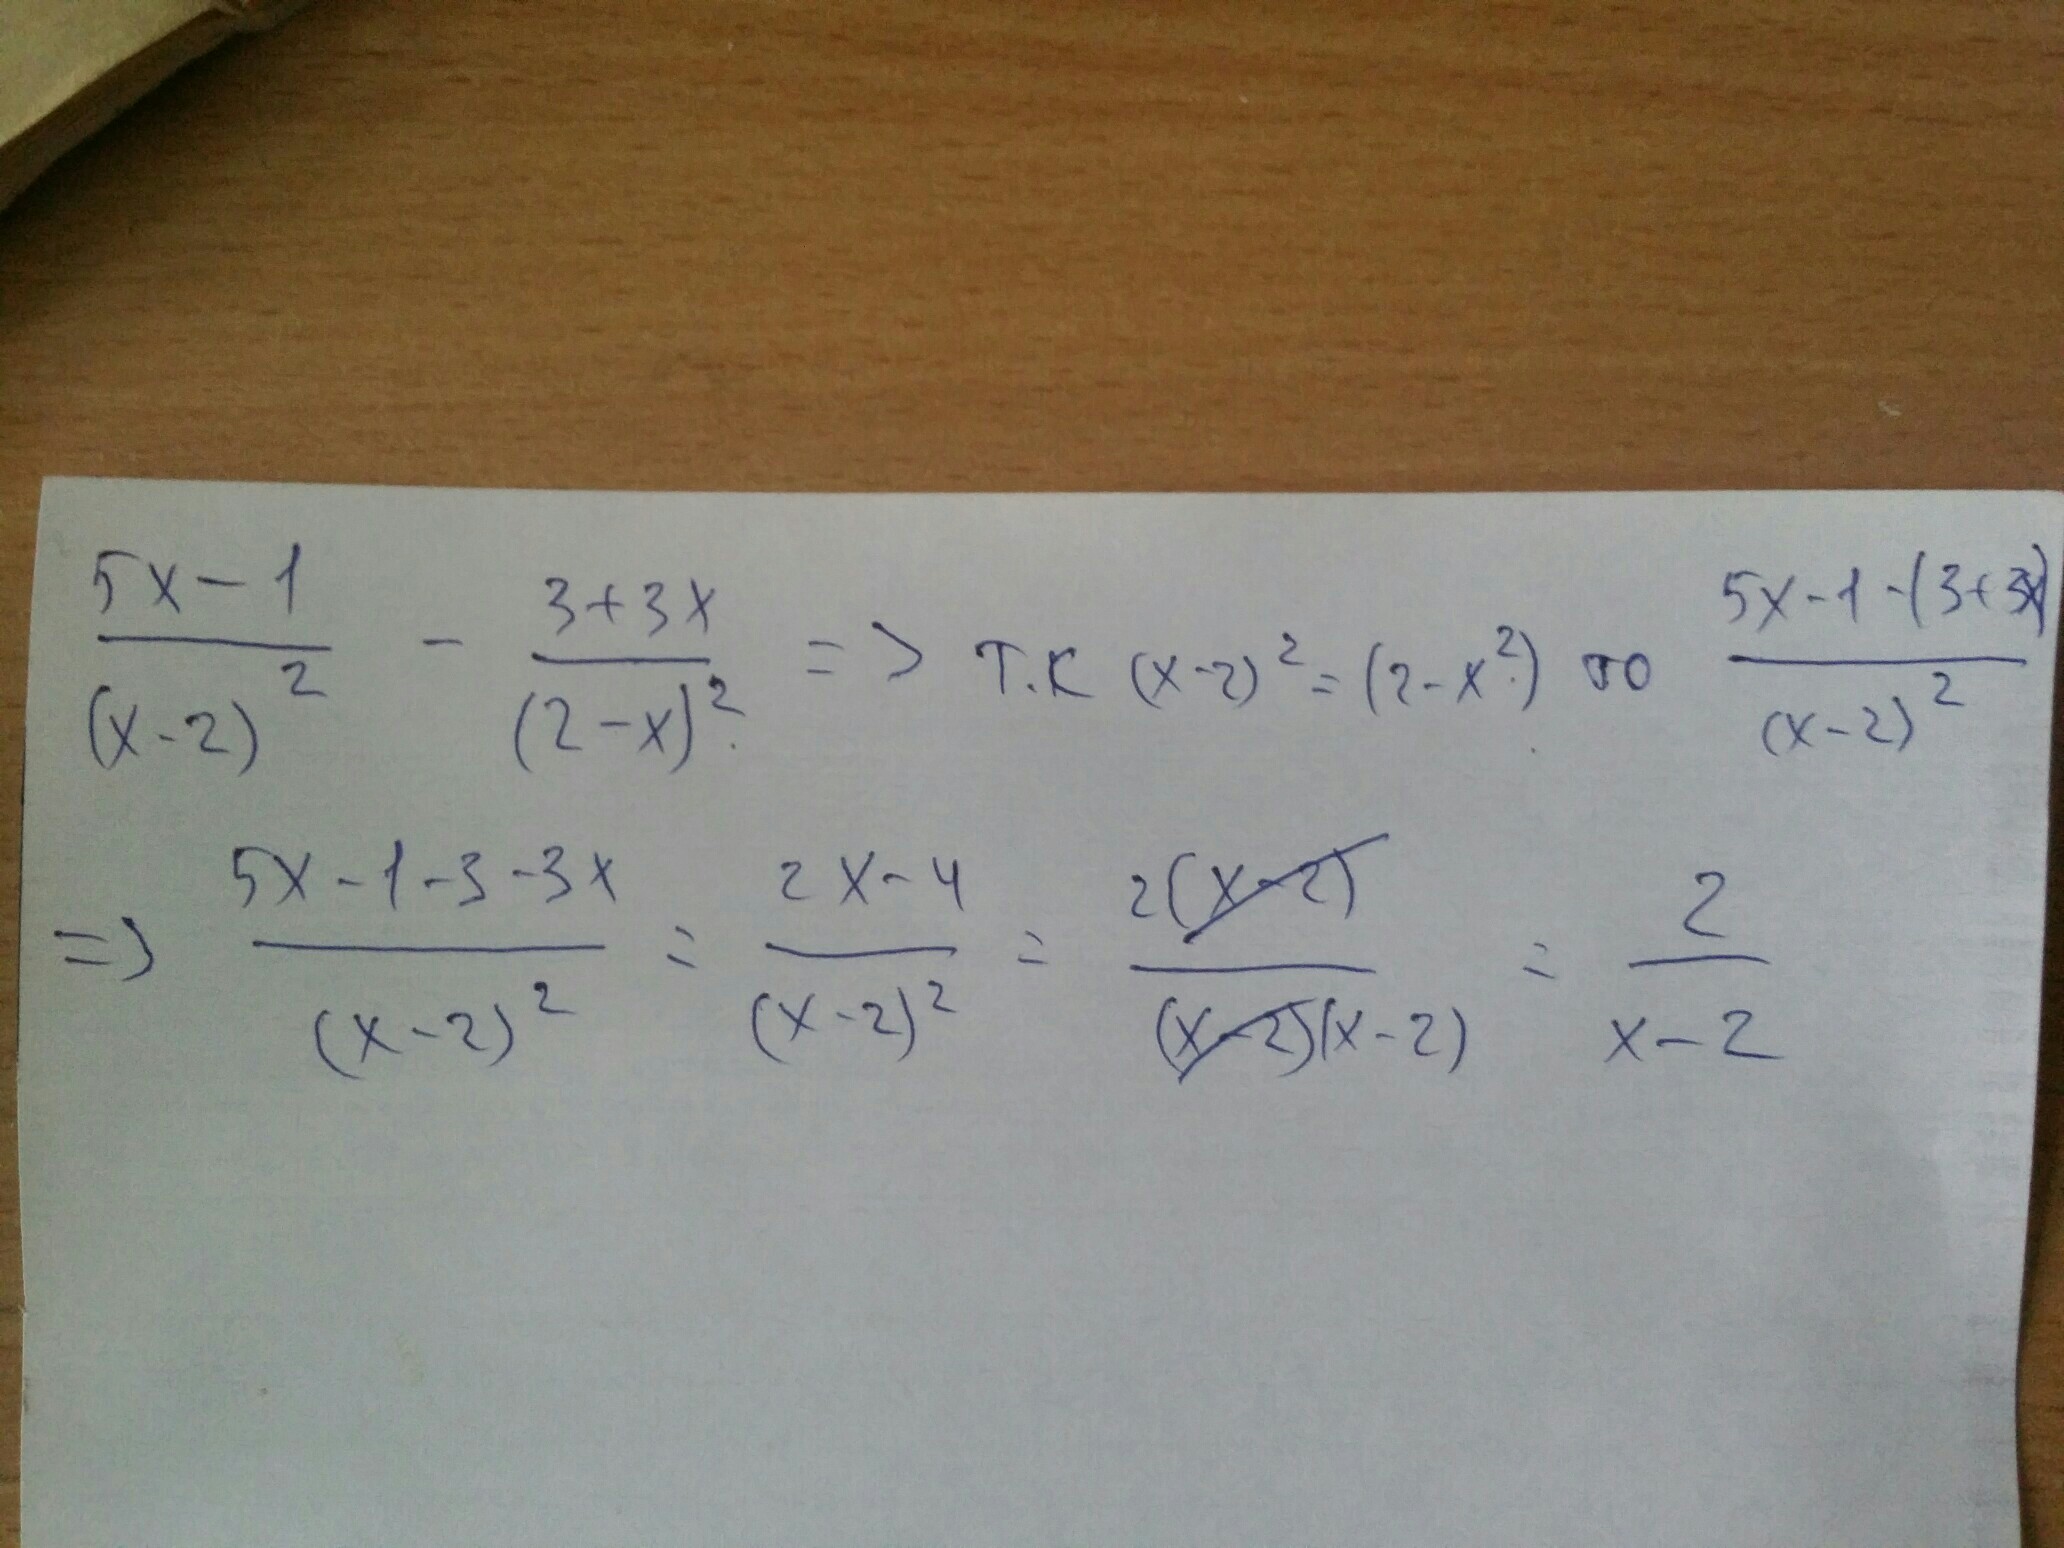 (5x-1)/(x-2)² - (3+3x)/(2-x)² => т.к (x-2)² = (2-x²) то (5x-1-(3+3x))/(x-2)²
=> (5x-1-3-3x)/(x-2)² = (2x-4)/(x-2)² = 2(x-2)/(x-2)(x-2) = 2/(x-2)